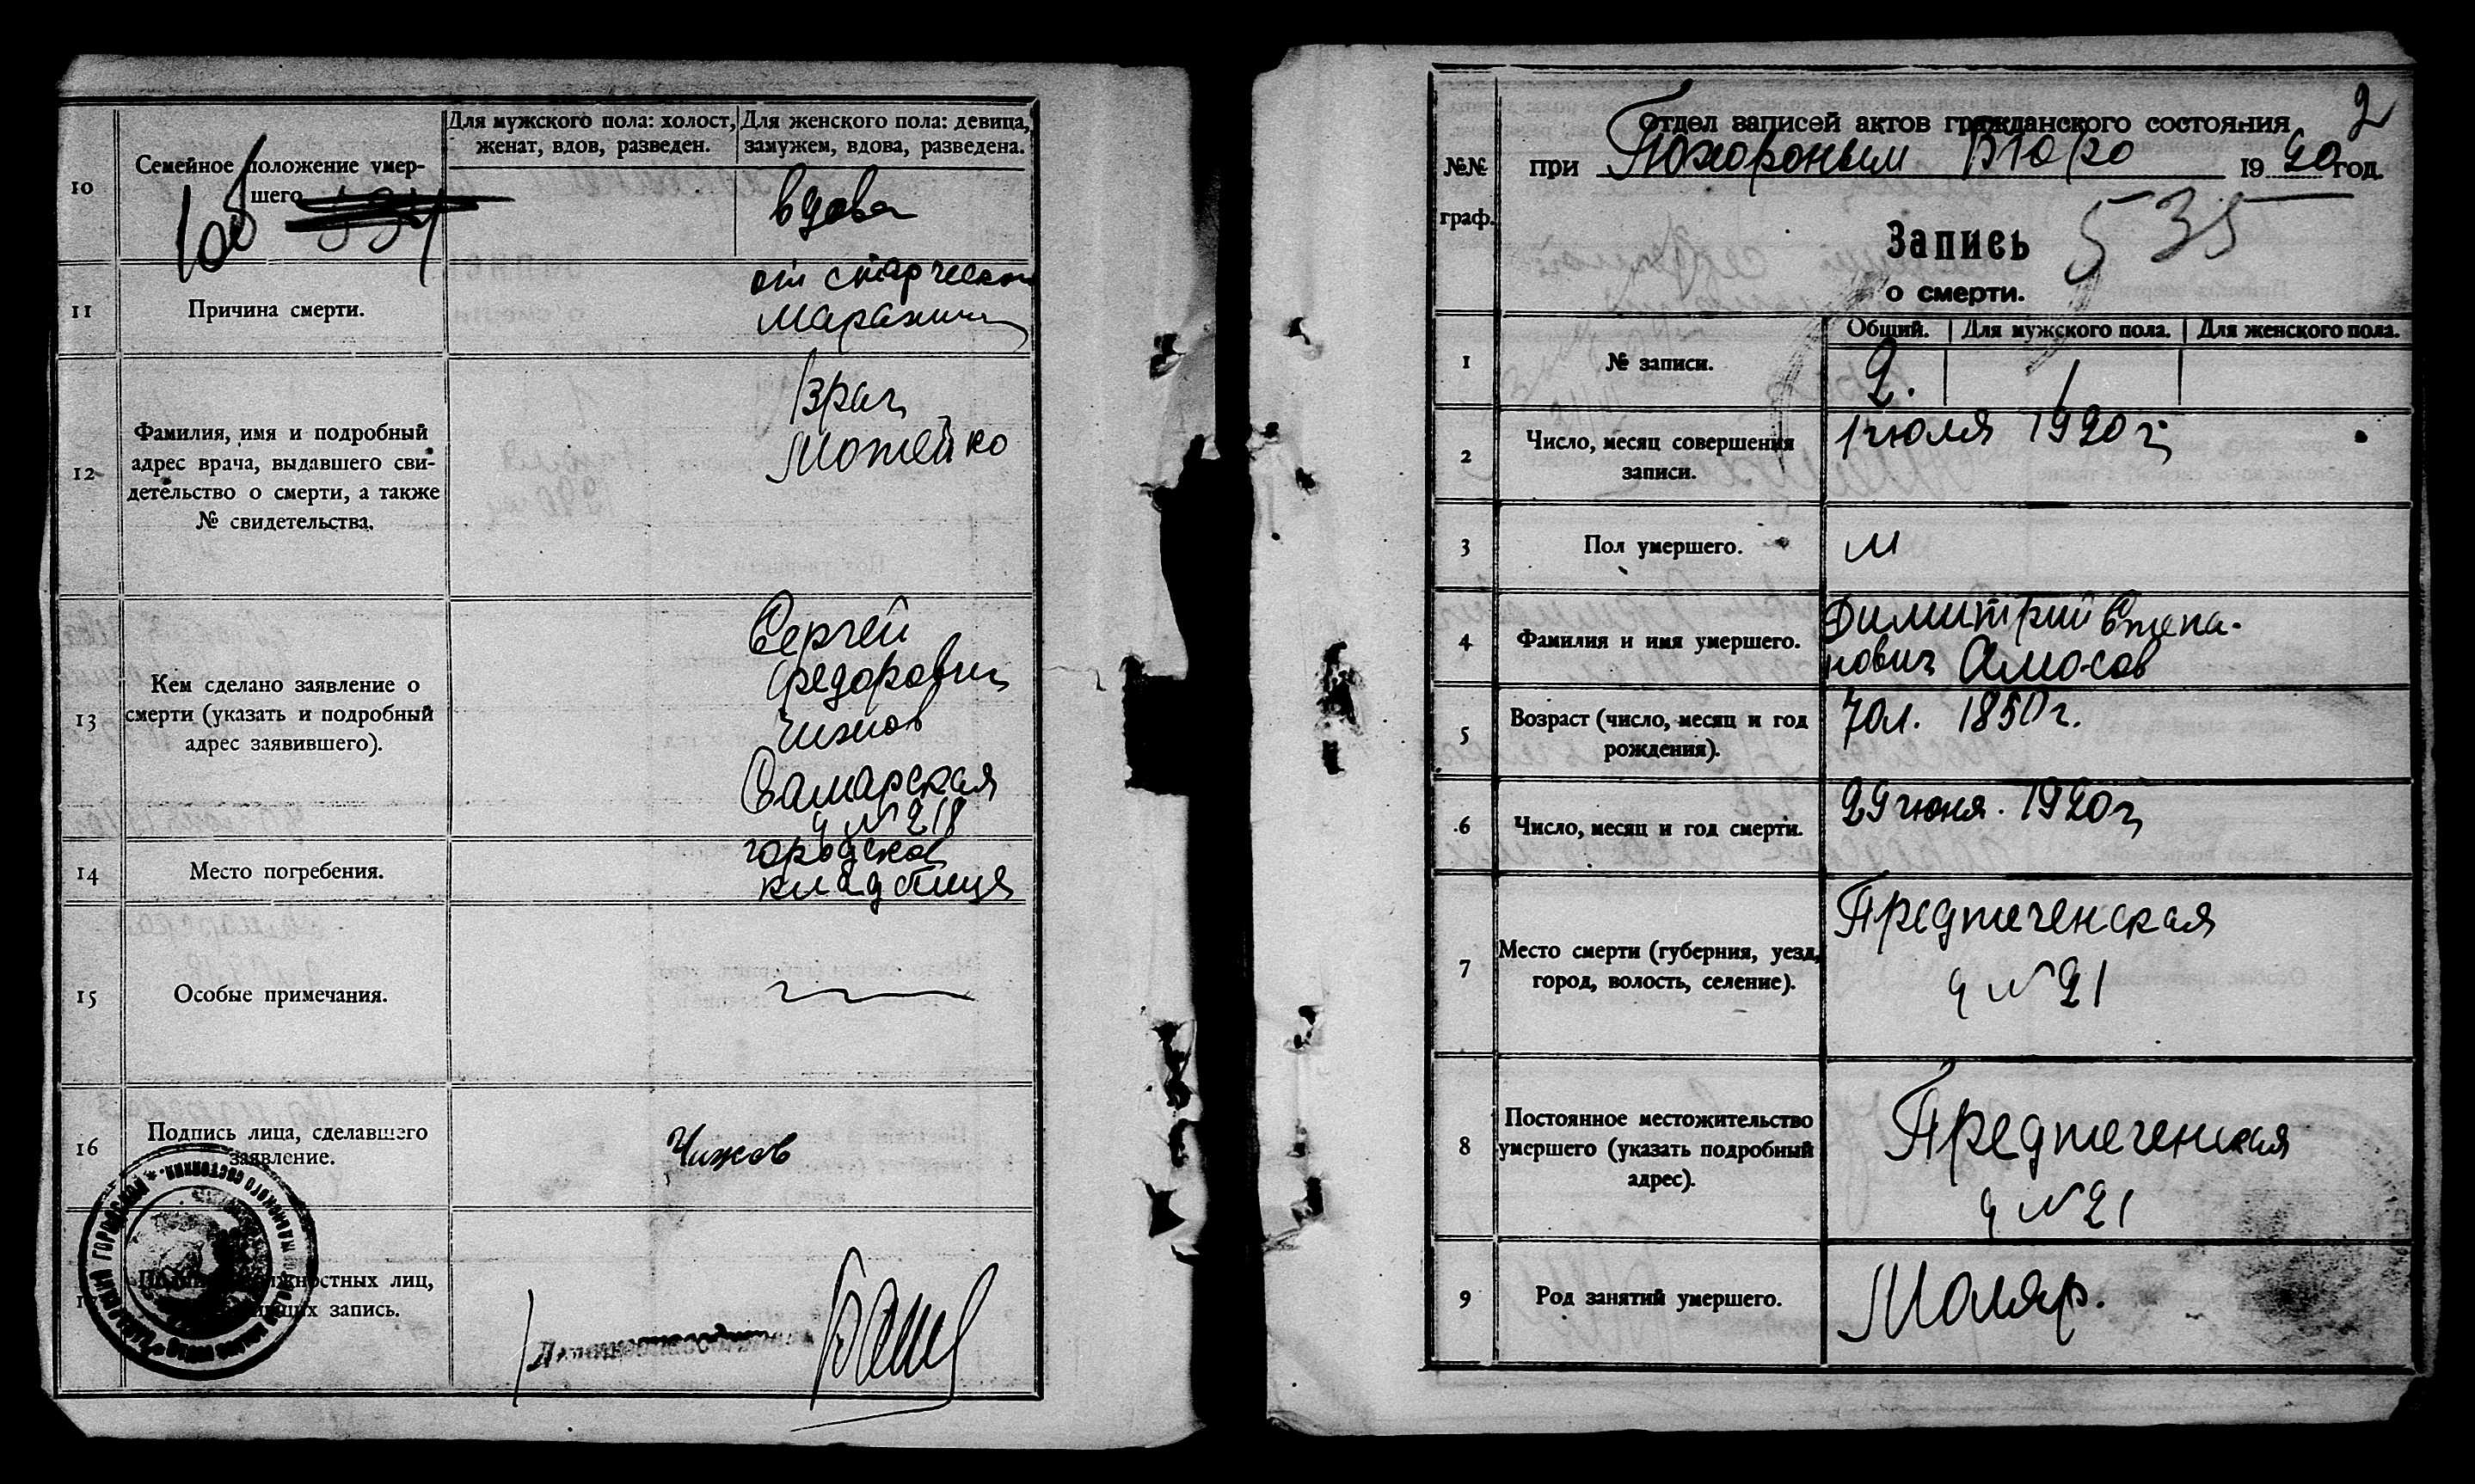 10
Семейное положение умер-
шего
Для мужского пола: холост,
женат, вдов, разведен.
Для женского пола: девица,
замужем, вдова, разведена.
вдова
11
Причина смерти.
от старческой
маразми
12
Фамилия, имя и подробный
адрес врача, выдавшего сви-
детельство о смерти, а также
№ свидетельства.
Врач
Можейко
13
Кем сделано заявление о
смерти (указать и подробный
адрес заявившего).
Сергей
Федорович
Чижов
Самарская
д № 218
14
Место погребения.
городское
кладбище
15
Особые примечания.
16
Подпись лица, сделавшего
заявление.
Чижов
17
должностных лиц,
запись.
2
Отдел записей актов гражданского состояния
при Похороным Бюро 1920 год.
№№
граф.
Запись
535
о смерти.
Общий. Для мужского пола. Для женского пола.
1
№ записи.
2. 1
2
Число, месяц совершения
записи.
1 июля 1920 г.
3
Пол умершего.
м
4
Фамилия и имя умершего.
Димитрий Степа-
нович Амосов
5
Возраст (число, месяц и год
рождения).
70 л. 1850 г.
6
Число, месяц и год смерти.
29 июня. 1920 г
7
Место смерти (губерния, уезд,
город, волость, селение).
Предтеченская
д № 21
8
Постоянное местожительство
умершего (указать подробный
адрес).
Предтеченская
д № 21
9
Род занятий умершего.
Маляр.